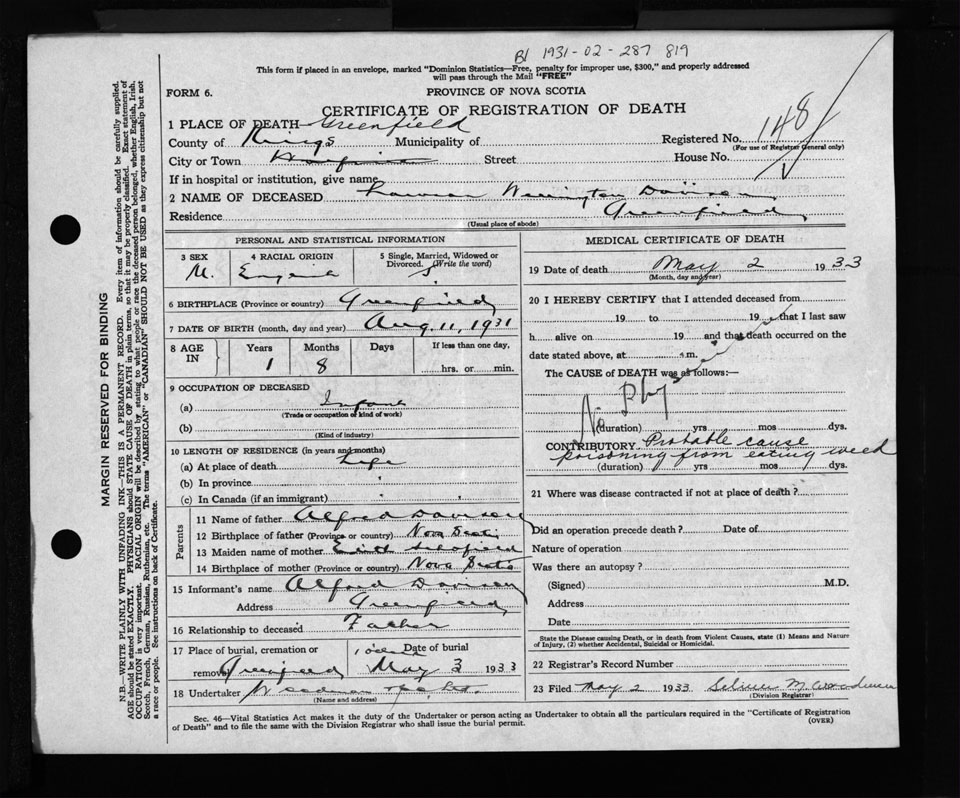 BI 1931-02-287 819
This form if placed in an envelope, marked "Dominion Statistics—Free, penalty for improper use, $300," and properly addressed
will pass through the Mail "FREE"
FORM 6.
PROVINCE OF NOVA SCOTIA
CERTIFICATE OF REGISTRATION OF DEATH
1 PLACE OF DEATH Greenfield
County of Kings Municipality of
Registered No. 148
(For use of Registrar General only)
City or Town Street House No.
If in hospital or institution, give name
2 NAME OF DECEASED Davison
Residence Greenfield
(Usual place of abode)
PERSONAL AND STATISTICAL INFORMATION
3 SEX
M.
4 RACIAL ORIGIN
5 Single, Married, Widowed or
Divorced. (Write the word)
S
6 BIRTHPLACE (Province or country) Greenfield
7 DATE OF BIRTH (month, day and year) Aug. 11, 1931
8 AGE IN
Years Months Days If less than one day,
1 8 hrs. or min.
9 OCCUPATION OF DECEASED
(a) Infant
(Trade or occupation or kind of work)
(b)
(Kind of industry)
10 LENGTH OF RESIDENCE (in years and months)
(a) At place of death Life
(b) In province
(c) In Canada (if an immigrant)
Parents
11 Name of father Alfred Davison
12 Birthplace of father (Province or country) Nova Scotia
13 Maiden name of mother Edith
14 Birthplace of mother (Province or country) Nova Scotia
15 Informant's name Alfred Davison
Address Greenfield
16 Relationship to deceased Father
17 Place of burial, cremation or Date of burial
removal Greenfield May 3 1933
18 Undertaker
(Name and address)
MEDICAL CERTIFICATE OF DEATH
19 Date of death May 2 1933
(Month, day and year)
20 I HEREBY CERTIFY that I attended deceased from
19 to 19 that I last saw
h alive on 19 and that death occurred on the
date stated above, at m.
The CAUSE of DEATH was as follows:—
No Phy
(duration) yrs mos dys.
CONTRIBUTORY Probable cause
poisoning from eating weed
(duration) yrs mos dys.
21 Where was disease contracted if not at place of death?
Did an operation precede death? Date of
Nature of operation
Was there an autopsy?
(Signed) M.D.
Address
Date
State the Disease causing Death, or in death from Violent Causes, state (1) Means and Nature
of Injury, (2) whether Accidental, Suicidal or Homicidal.
22 Registrar's Record Number
23 Filed May 2 1933
(Division Registrar)
Sec. 46—Vital Statistics Act makes it the duty of the Undertaker or person acting as Undertaker to obtain all the particulars required in the "Certificate of Registration
of Death" and to file the same with the Division Registrar who shall issue the burial permit.
(OVER)
MARGIN RESERVED FOR BINDING
N.B.—WRITE PLAINLY WITH UNFADING INK—THIS IS A PERMANENT RECORD. Every item of information should be carefully supplied.
AGE should be stated EXACTLY. PHYSICIANS should STATE CAUSE OF DEATH in plain terms, so that it may be properly classified. Exact statement of
OCCUPATION is very important. RACIAL ORIGIN will be described by stating to what people or race the deceased person belonged, whether English, Irish,
Scotch, French, German, Russian, Ruthenian, etc. The terms "AMERICAN" or "CANADIAN" SHOULD NOT BE USED as they express citizenship but not
a race or people. See instructions on back of Certificate.